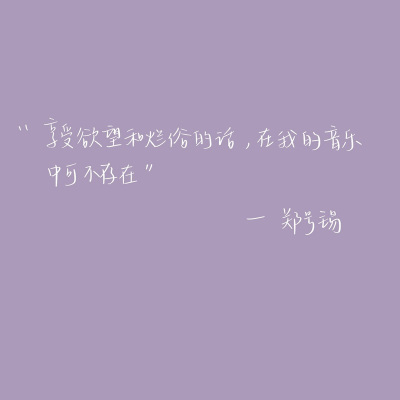 “享受欲望和烂俗的话，在我的音乐
中可不存在”
— 郑号锡